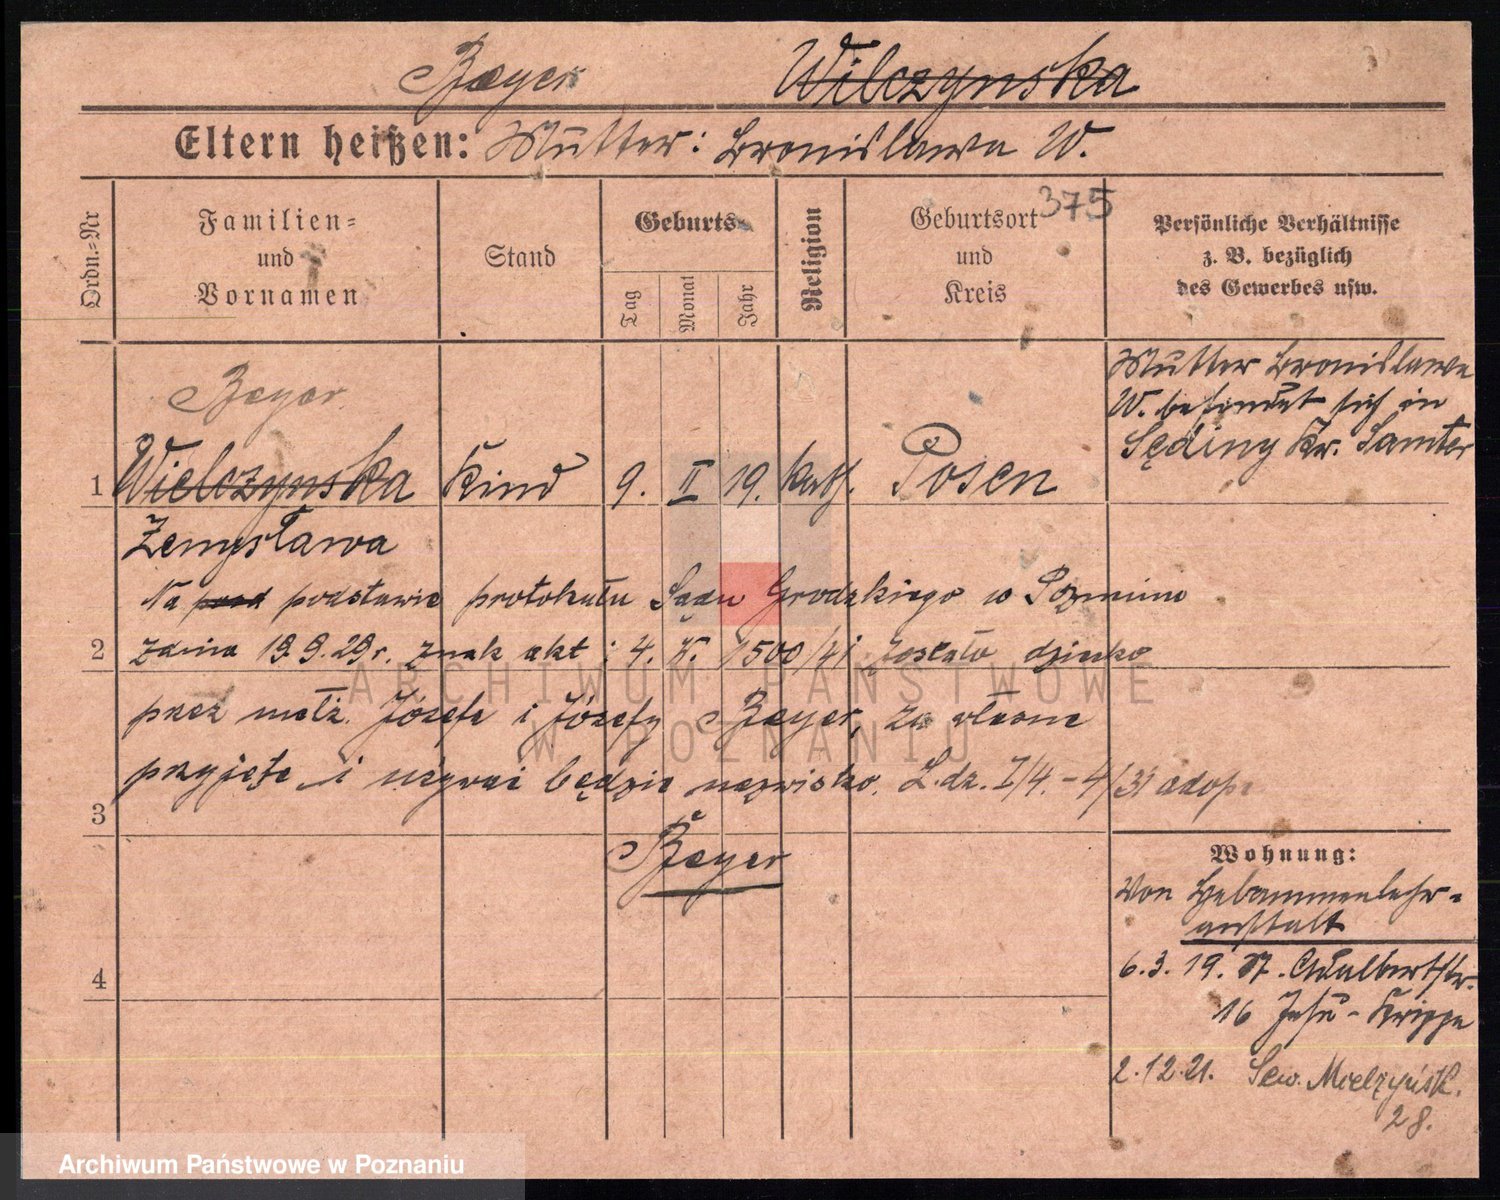 Beyer Wilczynska
Eltern heißen: Mutter: Bronislawa W.
375
Ordn.-Nr
Familien-
und
Vornamen
Stand
Geburts-
Tag
Monat
Jahr
Religion
Geburtsort
und
Kreis
Persönliche Verhältnisse
z. B. bezüglich
des Gewerbes usw.
Mutter Bronislawa
W. befindet sich in
Sędiny Kr. Samter
Beyer
1 Wielczynska Kind 9. II 19. kath. Posen
Zemysława
Na podstawie protokułu Sądu Grodzkiego w Poznaniu
2 z dnia 19.9.29 r. znak akt: 4. X. 1500/41 zostało dziecko
przez małż. Józefa i Józefy Beyer, za własne
przyjęte i używać będzie nazwisko. L. dz. I/4. - 4/31 adopt
3
Beyer
4
Wohnung:
Von Hebammenlehr-
anstalt
6.3.19. St. Adalbertstr.
16 Jesu-Krippe
2.12.21. Sew. Mielżyńsk.
28.
ARCHIWUM PAŃSTWOWE
W POZNANIU
Archiwum Państwowe w Poznaniu